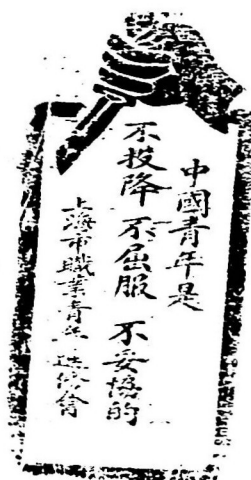 中國青年是
不投降 不屈服 不妥協的
上海市職業青年進修會